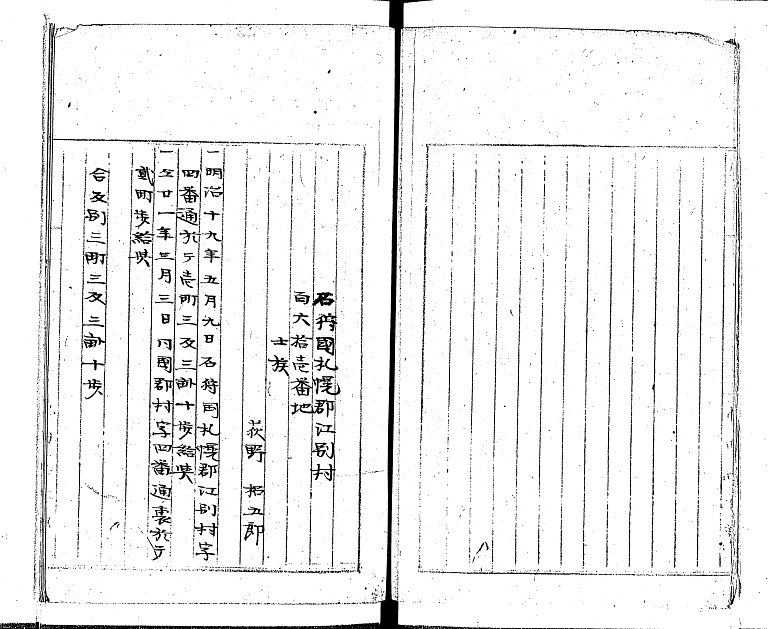 石狩國札幌郡江別村
百六拾壱番地
士族
荻野 松五郎
一明治十九年五月九日石狩国札幌郡江別村字
四番通於テ壱町三反三畝十歩給与
一仝廿一年三月三日同國郡村字四番通裏於テ
貳町歩給与
合反別三町三反三畝十歩